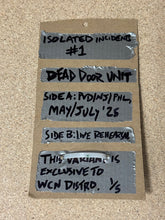 ISOLATED INCIDENT
#1
DEAD DOOR UNIT
SIDE A: PVD/NJ/PHL,
MAY/JULY '25
SIDE B: LIVE REHEARSAL
THIS VARIANT IS
EXCLUSIVE TO
WCN DISTRO. 1/5